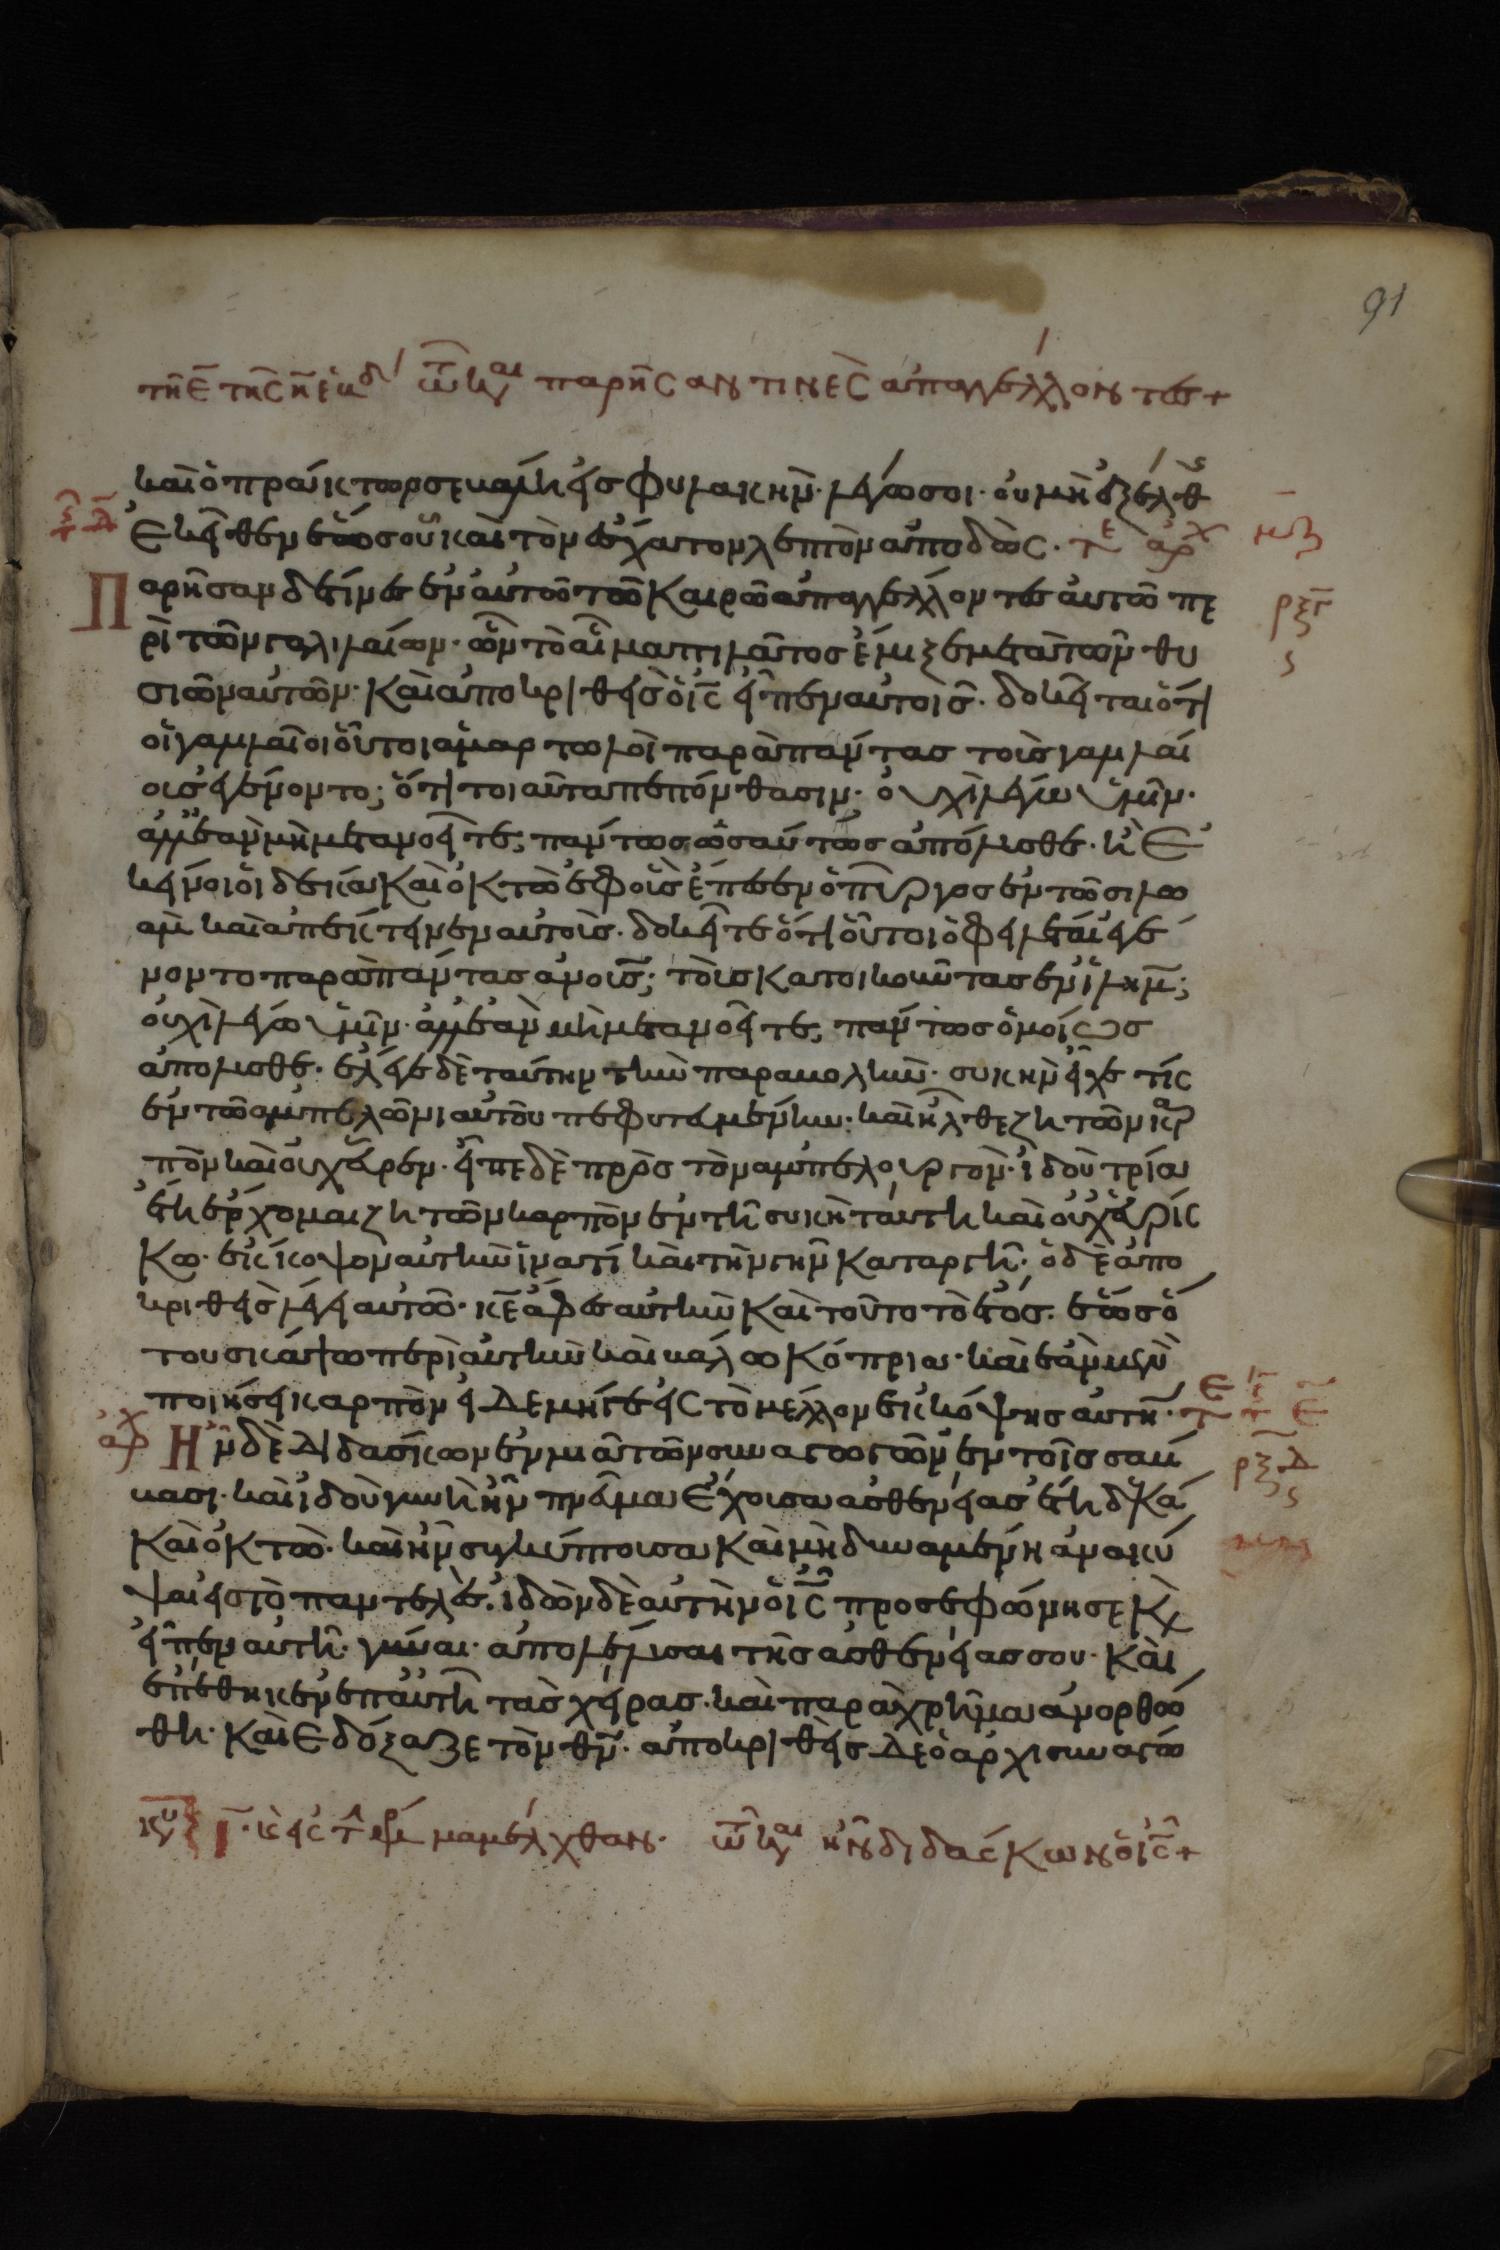 91
τῆ ε̄ τῆς η̄ ἑβδ τῶ κ αι παρῆσαν τινὲς ἀπαγγέλλοντες +
καὶ ὁ πράκτωρ σε βάλη εἰς φυλακήν· λέγω σοι· οὐ μὴ ἐξέλθης
ἐκεῖθεν ἕως οὗ καὶ τὸν ἔσχατον λεπτὸν ἀποδῶς· τε αρχ
Παρῆσαν δέ τινες ἐν αὐτῶ τῶ καιρῶ ἀπαγγέλλοντες αὐτῶ πε
ρὶ τῶν γαλιλαίων· ὧν τὸ αἷμα πιλᾶτος ἔμιξε μετὰ τῶν θυ
σιῶν αὐτῶν· καὶ ἀποκριθεὶς ὁ ις εἶπεν αὐτοῖς· δοκεῖται ὅτι
οἱ γαλιλαῖοι οὗτοι ἁμαρτωλοὶ παρὰ πάντας τοὺς γαλιλαί
ους ἐγένοντο; ὅτι τοιαῦτα πεπόνθασιν· οὐχὶ λέγω ὑμῖν·
ἀλλ' ἐὰν μὴ μετανοεῖτε; πάντως ὡσαύτως ἀπόλισθε· ἢ ἐ
κεῖνοι οἱ δέκα καὶ ὀκτὼ ἐφ' οὓς ἔπεσεν ὁ πύργος ἐν τῶ σιλω
ὰμ καὶ ἀπέκτεινεν αὐτοὺς· δοκεῖτε ὅτι οὗτοι ὀφειλέται ἐγέ
νοντο παρὰ πάντας ἀνους; τοὺς κατοικοῦντας ἐν ιλημ;
οὐχὶ λέγω ὑμῖν· ἀλλ' ἐὰν μὴ μετανοεῖτε, πάντως ὁμοίως
ἀπολισθε· ἔλεγε δὲ ταύτην τὴν παραβολὴν· συκὴν εἶχε τίς
ἐν τῶ ἀμπελῶνι αὐτοῦ πεφυτευμένην· καὶ ἦλθε ζητῶν καρ
πὸν καὶ οὐχ εὗρεν· εἶπε δὲ πρὸς τὸν ἀμπελουργὸν· ἰδοὺ τρία
ἔτη ἔρχομαι ζητῶν καρπὸν ἐν τῆ συκῆ ταύτη καὶ οὐχ εὑρίς
κω· ἔκκοψον αὐτὴν ἱνατί καὶ τὴν γῆν καταργῆ· ὁ δὲ ἀπο
κριθεὶς λέγει αὐτῶ· κε ἄφες αὐτὴν καὶ τοῦτο τὸ ἔτος· ἕως ὅ
του σκάψω περὶ αὐτὴν καὶ βάλω κόπρια· καὶ ἐὰν μὲν
ποιήσει καρπὸν εἰ δε μήγε εἰς τὸ μέλλον ἐκκόψης αὐτὴν·
Ἦν δὲ διδάσκων ἐν μιᾶ τῶν συναγωγῶν ἐν τοῖς σάβ
βασι· καὶ ἰδοὺ γυνὴ ἦν πνᾶμα ἔχουσα ἀσθενείας ἔτη δέκα
καὶ ὀκτὼ· καὶ ἦν συγκύπτουσα καὶ μὴ δυναμένη ἀνακύ
ψαι εἰς τὸ παντελές· ἰδὼν δὲ αὐτὴν ὁ ις προσεφώνησε κ
εἶπεν αὐτῆ· γύναι· ἀπολέλυσαι τῆς ἀσθενείας σου· καὶ
ἐπέθηκεν ἐπ' αὐτῆ τὰς χεῖρας· καὶ παραχρῆμα ἀνορθώ
θη· καὶ ἐδόξαζε τὸν θν· ἀποκριθεὶς δε ὁ ἀρχισυναγώ
τῶ κ αι ἦν διδάσκων ὁ ις +